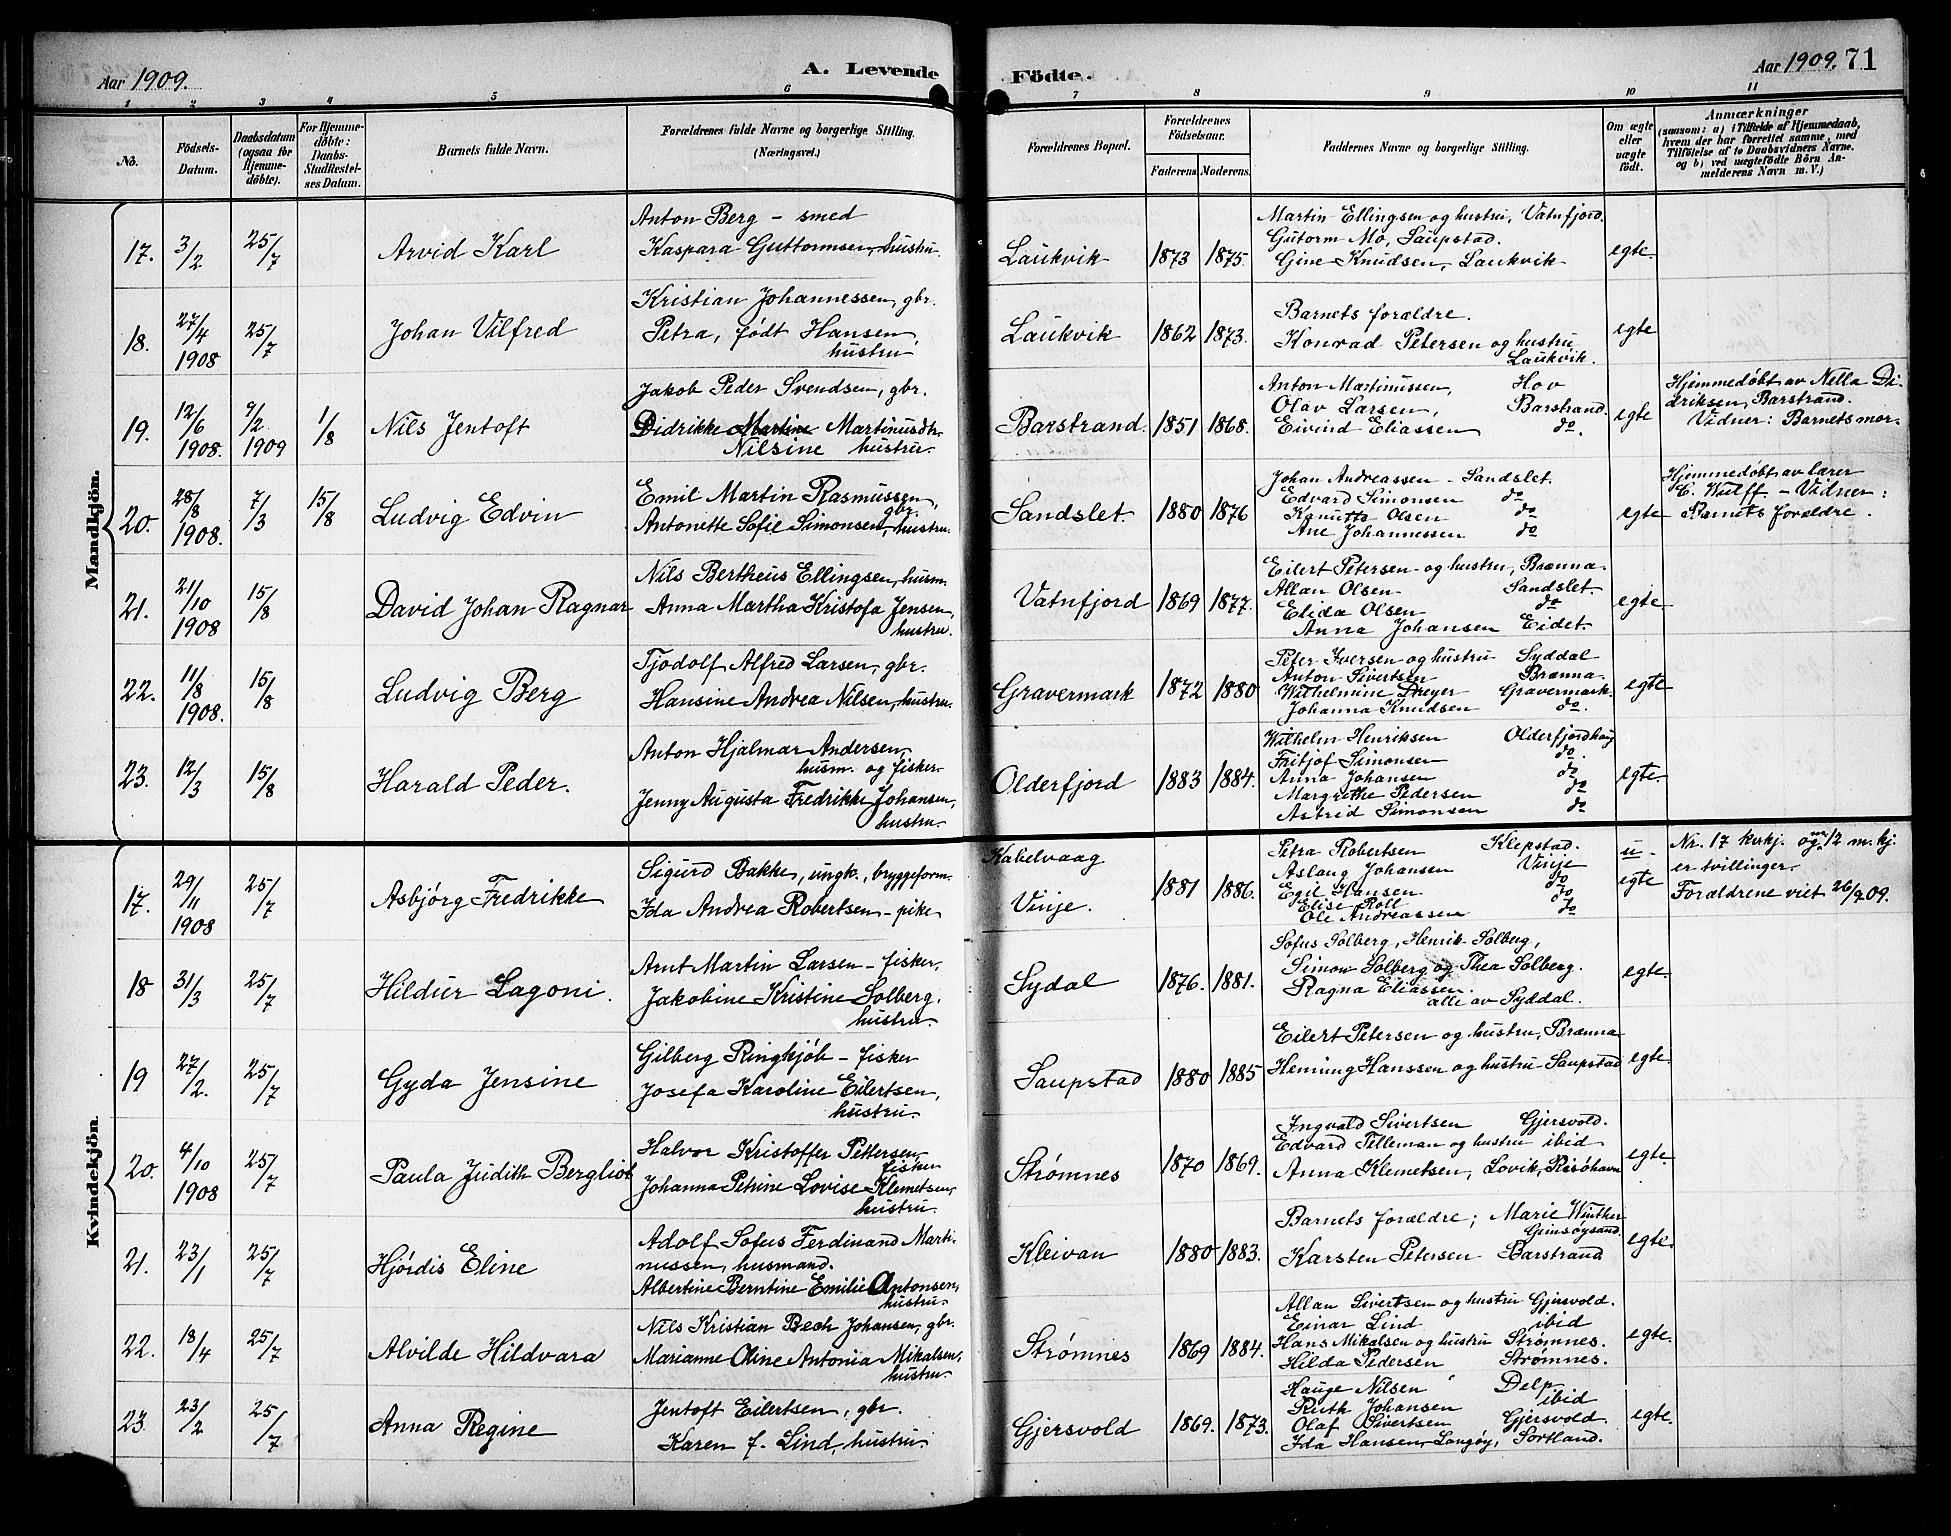 Aar 1909.
A. Levende
Födte.
Aar 1909. 71
1 2 3 4 5 6 7 8 9 10 11
No.
Födsels-
Datum.
Daabsdatum
(ogsaa for
Hjemme-
döbte).
For Hjemme-
döbte:
Daabs-
Stadfestel-
ses Datum.
Barnets fulde Navn.
Forældrenes fulde Navne og borgerlige Stilling.
(Næringsvei.)
Forældrenes Bopæl.
Forældrenes
Födselsaar.
Faderens. Moderens.
Faddernes Navne og borgerlige Stilling.
Om ægte
eller
uægte
födt.
Anmærkninger
(saasom: a) i Tilfælde af Hjemmedaab,
hvem der har forrettet samme, med
Tilföielse af to Daabsvidners Navne,
og b) ved uægtefödte Börn An-
melderens Navn m. V.)
Mandkjön.
17. 3/2 25/7 Arvid Karl
Anton Berg – smed
Kaspara Guttormsen, hustru.
Laukvik 1873 1875.
Martin Ellingsen og hustru, Vatnfjord.
Gutorm Mo, Saupstad.
Gine Knudsen, Laukvik
egte.
18. 27/4 1908 25/7 Johan Vilfred
Kristian Johannessen, gbr.
Petra, født Hansen,
hustru
Laukvik 1862 1873.
Barnets forældre.
Konrad Petersen og hustru,
Laukvik.
egte
19. 12/6 1908. 9/2 1909 1/8 Nils Jentoft
Jakob Peder Svendsen, gbr.
Didrikke Martine Martinusdtr.
Nilsine hustru.
Barstrand. 1851 1868.
Anton Martinussen, Hov
Olav Larsen, Barstrand.
Eivind Eliassen do.
egte
Hjemmedøbt av Nella Di-
driksen, Barstrand.
Vidner: Barnets mor.
20. 28/8 1908. 7/3 15/8 Ludvig Edvin
Emil Martin Rasmussen,
gbr.
Antonette Sofie Simonsen, hustru.
Sandslet. 1880 1876
Johan Andreassen – Sandslet.
Edvard Simonsen do
Kanutte Olsen do
Ane Johannessen do
egte
Hjemmedøbt av lærer
C. Wulff – Vidner:
Barnets forældre.
21. 21/10 1908 15/8 David Johan Ragnar
Nils Bertheus Ellingsen, husm.
Anna Martha Kristofa Jensen,
hustru.
Vatnfjord 1869 1877.
Eilert Petersen – og hustru, Brænna.
Allan Olsen Sandslet.
Elida Olsen do
Anna Johansen Eidet.
egte
22. 11/8 1908. 15/8 Ludvig Berg
Tjodolf Alfred Larsen, gbr.
Hansine Andrea Nilsen, hustru.
Gravermark 1872 1880
Peter Iversen og hustru Syddal
Anton Sivertsen Brænna.
Wilhelmine Dreyer Gravermark.
Johanna Knudsen do.
egte
23. 12/3 15/8 Harald Peder.
Anton Hjalmar Andersen,
husm. og fisker.
Jenny Augusta Fredrikke Johansen,
hustru.
Olderfjord 1883 1884.
Wilhelm Henriksen Olderfjordhaug
Fritjof Simonsen do.
Anna Johansen do
Margrethe Pedersen do
Astrid Simonsen do
egte.
Kvindekjön.
17. 29/11 1908 25/7 Asbjørg Fredrikke
Sigurd Bakke, ungk., bryggeform.
Ida Andrea Robertsen – pike
Kabelvaag
Vinje. 1881 1886.
Petra Robertsen Klepstad.
Aslaug Johansen Vinje
Egil Hansen do
Elise Roll do
Ole Andreassen do
u-
egte
Nr. 17 kvkj. og nr 12 m.kj.
er tvillinger.
Forældrene viet 26/9 09.
18 31/3 25/7 Hildur Lagoni.
Arnt Martin Larsen – fisker,
Jakobine Kristine Solberg,
hustru.
Sydal 1876. 1881.
Sofus Solberg, Henrik Solberg,
Simon Solberg og Thea Solberg.
Ragna Eliassen.
alle av Syddal.
egte.
19 27/2. 25/7 Gyda Jensine
Gilberg Ringkjøb – fisker
Josefa Karoline Eilertsen,
hustru.
Saupstad 1880 1885
Eilert Petersen og hustru, Brænna
Henning Hanssen og hustru Saupstad
egte.
20. 4/10 1908 25/7 Paula Judith Bergliot
Halvor Kristoffer Pettersen,
fisker
Johanna Petrine Lovise Klemetsen,
hustru.
Strømnes 1870 1869.
Ingvald Sivertsen Gjersvold.
Edvard Tilleman og hustru ibid
Anna Klemetsen, Lovik, Risøhavn
egte.
21. 23/1 25/7 Hjørdis Eline
Adolf Sofus Ferdinand Marti-
nussen, husmand.
Albertine Berntine Emilie Antonsen,
hustru.
Kleivan 1880 1883.
Barnets forældre; Marie Winther
Gimsøysand.
Karsten Petersen Barstrand
egte.
22. 18/4 25/7 Alvilde Hildvara
Nils Kristian Bech Johansen, gbr.
Marianne Oline Antonia Mikalsen,
hustru.
Strømnes 1869 1884.
Allan Sivertsen og hustru Gjersvold.
Einar Lind ibid
Hans Mikalsen og hustru Strømnes.
Hilda Pedersen Strømnes.
egte.
23 23/2 25/7 Anna Regine
Jentoft Eilertsen, gbr.
Karen f. Lind, hustru.
Gjersvold 1869. 1873.
Hauge Nilsen Delp
Ruth Johansen ibid
Olaf Sivertsen Gjersvold.
Ida Hansen, Langøy, Sortland.
egte.